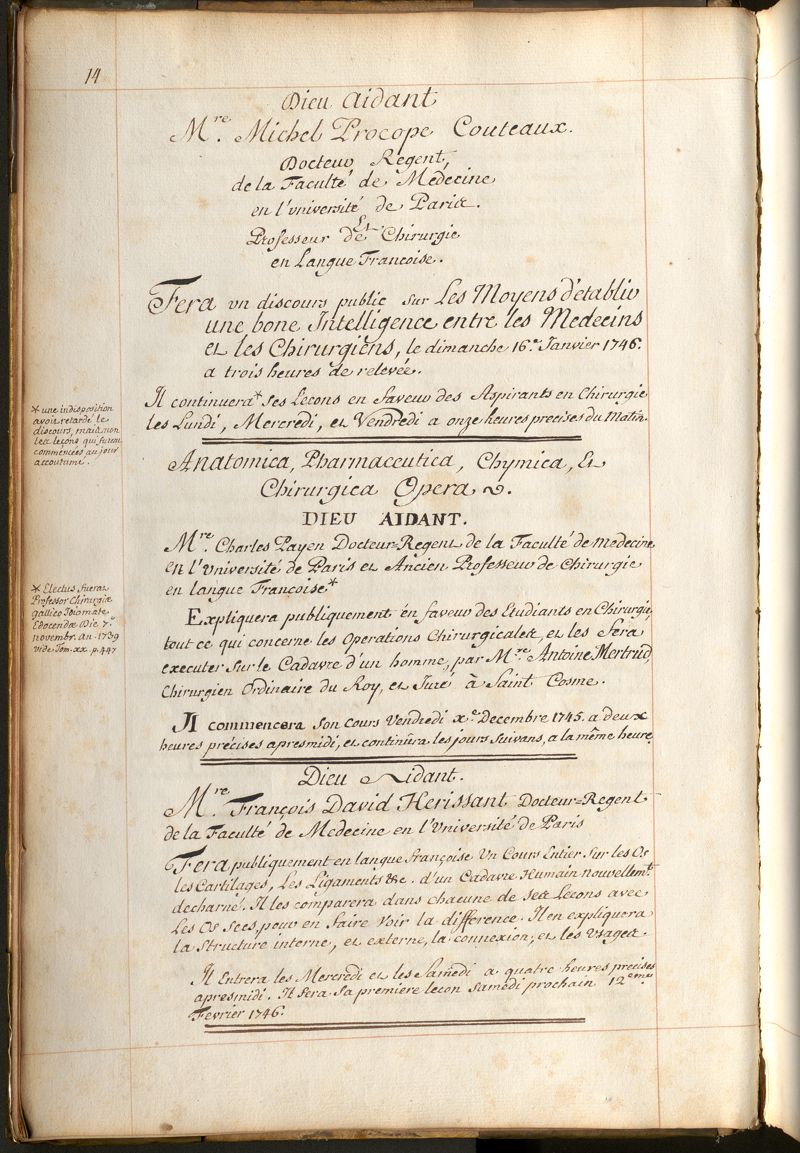 14
Dieu Aidant
M.re Michel Procope Couteaux.
Docteur Regent,
de la Faculté de Médecine
en l'université de Paris.
Et
Professeur de Chirurgie
en Langue Francoise.
Fera un discours public sur Les Moyens d'établir
une bone Intelligence entre les Medecins
et les Chirurgiens, le dimanche 16.e Janvier 1746.
a trois heures de relevée.
Il continuera* ses Lecons en faveur des Aspirants en Chirurgie
les Lundi, Mercredi, et Vendredi a onze heures precises du Matin.
* une indisposition
avoit retardé le
discours, mais non
les leçons qui furent
commencées au jour
accoutumé.
Anatomica, Pharmaceutica, Chymica, Et
Chirurgica Opera.
DIEU AIDANT.
M.re Charles Payen Docteur=Regent de la Faculté de Medecine
en l'Université de Paris et Ancien Professeur de Chirurgie
en langue Françoise*
* Electus fuerat
Professor Chirurgiæ
gallico Idiomate
Edocendæ Die 7.a
novembr. An. 1739
vide Tom. xx p. 447
Expliquera publiquement en faveur des Etudiants en Chirurgie,
tout ce qui concerne les Operations Chirurgicales, et les Fera
executer sur le Cadavre d'un homme, par M.re Antoine Mertrud,
Chirurgien Ordinaire du Roy, et Juré à Saint Cosme.
Il commencera son cours Vendredi x.e Decembre 1745. a deux
heures précises apresmidi, et continûra les jours Suivans, a la même heure.
Dieu Aidant.
M.re François David Herissant Docteur=Regent
de la Faculté de Medecine en l'Université de Paris
Fera publiquement en langue françoise Un Cours Entier sur les Os
les Cartilages, Les Ligaments &c. d'un Cadavre Humain nouvellem.t
decharné. Il les comparera dans chacune de ses Lecons avec
Les Os secs, pour en faire voir la différence. Il en expliquera
la structure interne, et externe, la connexion, et les Usages.
Il Entrera les Mercredi et les Samedi a quatre heures precises
apresmidi. Il fera sa premiere lecon Samedi prochain 12.eme
Fevrier 1746.